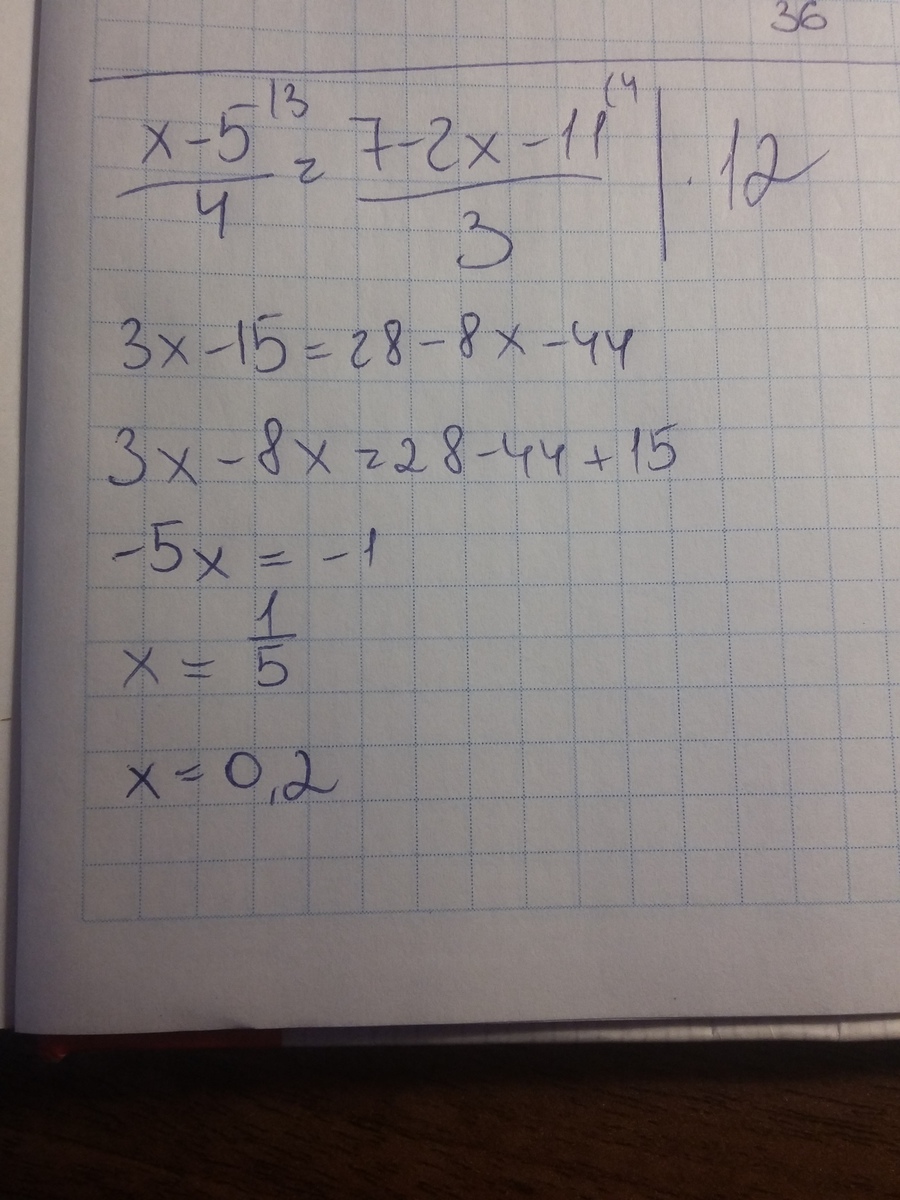 36
x-5 |3 / 4 = 7-2x-11 (4 / 3 | · 12
3x-15=28-8x-44
3x-8x=28-44+15
-5x = -1
x = 1/5
x = 0,2